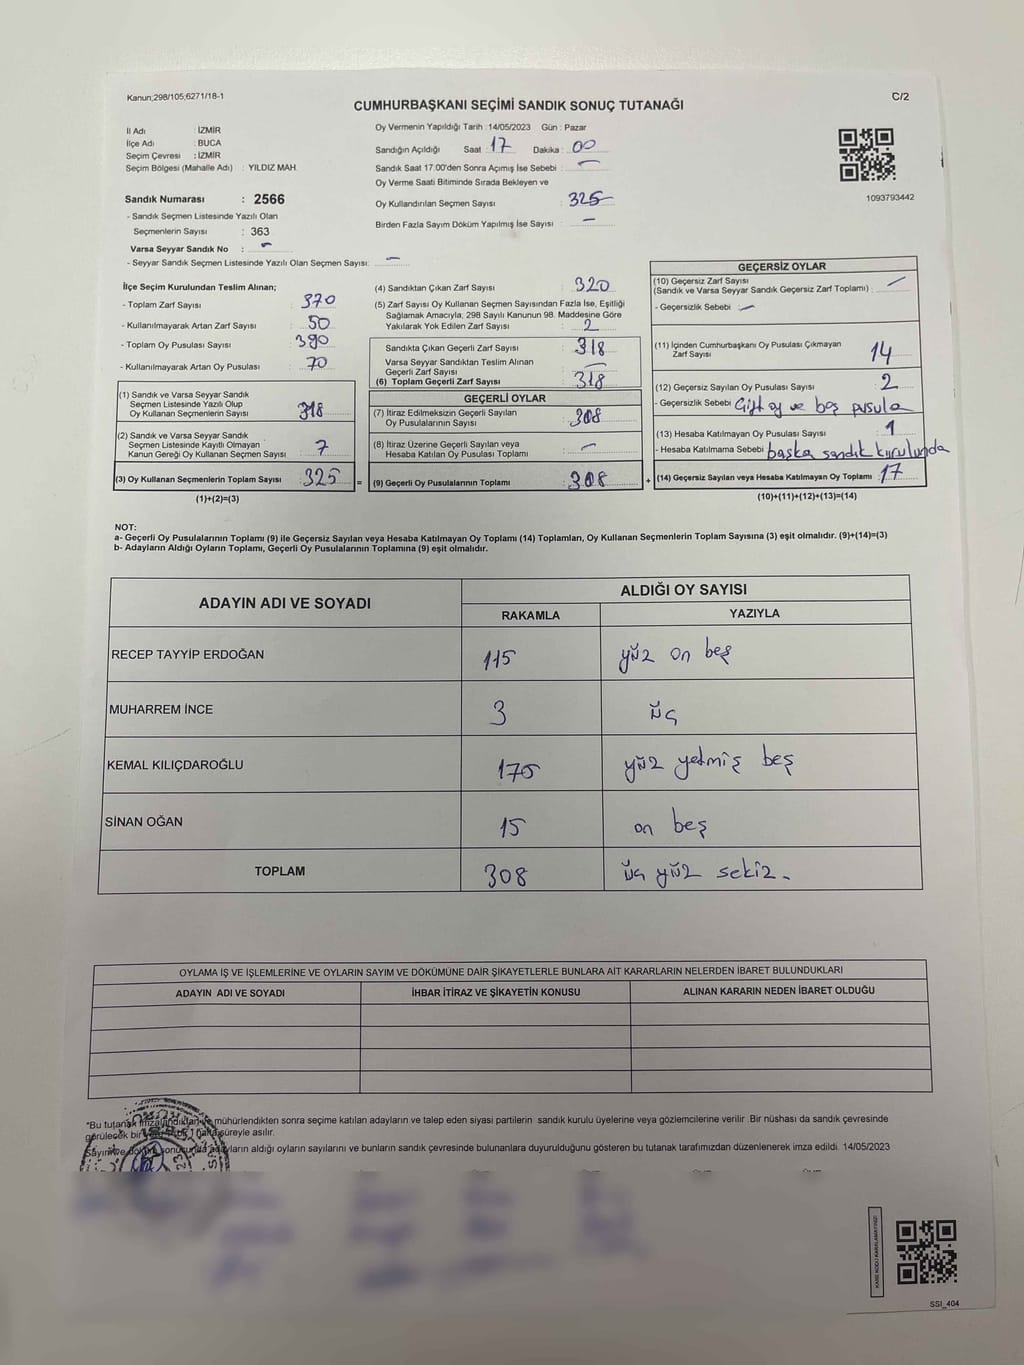 Kanun;298/105;6271/18-1
C/2
CUMHURBAŞKANI SEÇİMİ SANDIK SONUÇ TUTANAĞI
İl Adı : İZMİR
İlçe Adı : BUCA
Seçim Çevresi : İZMİR
Seçim Bölgesi (Mahalle Adı) : YILDIZ MAH.
Oy Vermenin Yapıldığı Tarih :14/05/2023 Gün : Pazar
Sandığın Açıldığı Saat : 17 Dakika : 00
Sandık Saat 17:00'den Sonra Açılmış İse Sebebi : —
Oy Verme Saati Bitiminde Sırada Bekleyen ve
Oy Kullandırılan Seçmen Sayısı : 325
Birden Fazla Sayım Döküm Yapılmış İse Sayısı : —
1093793442
Sandık Numarası : 2566
- Sandık Seçmen Listesinde Yazılı Olan
Seçmenlerin Sayısı : 363
Varsa Seyyar Sandık No : —
- Seyyar Sandık Seçmen Listesinde Yazılı Olan Seçmen Sayısı: —
İlçe Seçim Kurulundan Teslim Alınan;
- Toplam Zarf Sayısı : 370
- Kullanılmayarak Artan Zarf Sayısı : 50
- Toplam Oy Pusulası Sayısı : 390
- Kullanılmayarak Artan Oy Pusulası : 70
(1) Sandık ve Varsa Seyyar Sandık
Seçmen Listesinde Yazılı Olup
Oy Kullanan Seçmenlerin Sayısı : 318
(2) Sandık ve Varsa Seyyar Sandık
Seçmen Listesinde Kayıtlı Olmayan
Kanun Gereği Oy Kullanan Seçmen Sayısı : 7
(3) Oy Kullanan Seçmenlerin Toplam Sayısı : 325
(1)+(2)=(3)
(4) Sandıktan Çıkan Zarf Sayısı : 320
(5) Zarf Sayısı Oy Kullanan Seçmen Sayısından Fazla İse, Eşitliği
Sağlamak Amacıyla; 298 Sayılı Kanunun 98. Maddesine Göre
Yakılarak Yok Edilen Zarf Sayısı : 2
Sandıkta Çıkan Geçerli Zarf Sayısı : 318
Varsa Seyyar Sandıktan Teslim Alınan
Geçerli Zarf Sayısı : —
(6) Toplam Geçerli Zarf Sayısı : 318
GEÇERLİ OYLAR
(7) İtiraz Edilmeksizin Geçerli Sayılan
Oy Pusulalarının Sayısı : 308
(8) İtiraz Üzerine Geçerli Sayılan veya
Hesaba Katılan Oy Pusulası Toplamı : —
= (9) Geçerli Oy Pusulalarının Toplamı : 308
GEÇERSİZ OYLAR
(10) Geçersiz Zarf Sayısı
(Sandık ve Varsa Seyyar Sandık Geçersiz Zarf Toplamı) : —
- Geçersizlik Sebebi : —
(11) İçinden Cumhurbaşkanı Oy Pusulası Çıkmayan
Zarf Sayısı : 14
(12) Geçersiz Sayılan Oy Pusulası Sayısı : 2
- Geçersizlik Sebebi : Çift oy ve boş pusula
(13) Hesaba Katılmayan Oy Pusulası Sayısı : 1
- Hesaba Katılmama Sebebi : başka sandık kurulunda
+ (14) Geçersiz Sayılan veya Hesaba Katılmayan Oy Toplamı : 17
(10)+(11)+(12)+(13)=(14)
NOT:
a- Geçerli Oy Pusulalarının Toplamı (9) ile Geçersiz Sayılan veya Hesaba Katılmayan Oy Toplamı (14) Toplamları, Oy Kullanan Seçmenlerin Toplam Sayısına (3) eşit olmalıdır. (9)+(14)=(3)
b- Adayların Aldığı Oyların Toplamı, Geçerli Oy Pusulalarının Toplamına (9) eşit olmalıdır.
ADAYIN ADI VE SOYADI
ALDIĞI OY SAYISI
RAKAMLA YAZIYLA
RECEP TAYYİP ERDOĞAN 115 yüz on beş
MUHARREM İNCE 3 üç
KEMAL KILIÇDAROĞLU 175 yüz yetmiş beş
SİNAN OĞAN 15 on beş
TOPLAM 308 üç yüz sekiz.
OYLAMA İŞ VE İŞLEMLERİNE VE OYLARIN SAYIM VE DÖKÜMÜNE DAİR ŞİKAYETLERLE BUNLARA AİT KARARLARIN NELERDEN İBARET BULUNDUKLARI
ADAYIN ADI VE SOYADI İHBAR İTİRAZ VE ŞİKAYETİN KONUSU ALINAN KARARIN NEDEN İBARET OLDUĞU
*Bu tutanak imzalandıktan ve mühürlendikten sonra seçime katılan adayların ve talep eden siyasi partilerin sandık kurulu üyelerine veya gözlemcilerine verilir. Bir nüshası da sandık çevresinde
görülecek bir süreyle asılır.
Sayım ve döküm sonucunda adayların aldığı oyların sayılarını ve bunların sandık çevresinde bulunanlara duyurulduğunu gösteren bu tutanak tarafımızdan düzenlenerek imza edildi. 14/05/2023
SSI_404